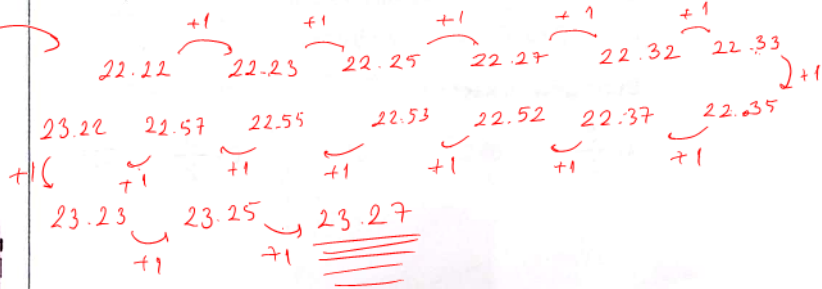 +1 +1 +1 +1 +1
22.22 22.23 22.25 22.27 22.32 22.33
+1
23.22 22.57 22.55 22.53 22.52 22.37 22.35
+1 +1 +1 +1 +1 +1 +1
23.23 23.25 23.27
+1 +1